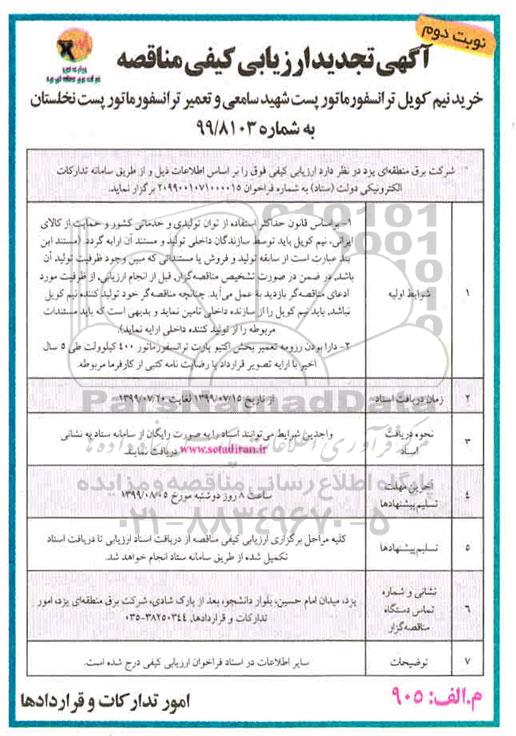 نوبت دوم
آگهی تجدید ارزیابی کیفی مناقصه
خرید نیم کویل ترانسفورماتور پست شهید سامعی و تعمیر ترانسفورماتور پست نخلستان
به شماره ۹۹/۸۱۰۳
شرکت برق منطقه‌ای یزد در نظر دارد ارزیابی کیفی فوق را بر اساس اطلاعات ذیل و از طریق سامانه تدارکات
الکترونیکی دولت (ستاد) به شماره فراخوان ۲۰۹۹۰۰۱۰۷۱۰۰۰۰۱۵ برگزار نماید.
۱
شرایط اولیه
۱- براساس قانون حداکثر استفاده از توان تولیدی و خدماتی کشور و حمایت از کالای
ایرانی، نیم کویل باید توسط سازندگان داخلی تولید و مستند آن ارایه گردد. (مستند این
بند عبارت است از سابقه تولید و فروش یا مستنداتی که مبین وجود ظرفیت تولید آن
باشد. در ضمن در صورت تشخیص مناقصه‌گزار، قبل از انجام ارزیابی، از ظرفیت مورد
ادعای مناقصه‌گر بازدید به عمل می‌آید. چنانچه مناقصه‌گر خود تولید کننده نیم کویل
نباشد، باید نیم کویل را از سازنده داخلی تامین نماید و بدیهی است که باید مستندات
مربوطه را از تولید کننده داخلی ارایه نماید).
۲- دارا بودن رزومه تعمیر بخش اکتیو پارت ترانسفورماتور ۴۰۰ کیلوولت طی ۵ سال
اخیر با ارایه تصویر قرارداد یا رضایت نامه کتبی از کارفرما مربوطه.
۲
زمان دریافت اسناد
از تاریخ ۱۳۹۹/۰۷/۱۵ لغایت ۱۳۹۹/۰۷/۲۰
۳
نحوه دریافت
اسناد
واجدین شرایط می‌توانند اسناد را به صورت رایگان از سامانه ستاد به نشانی
www.setadiran.ir دریافت نمایند.
۴
آخرین مهلت
تسلیم پیشنهادها
ساعت ۸ روز دوشنبه مورخ ۱۳۹۹/۰۸/۰۵
۵
تسلیم پیشنهادها
کلیه مراحل برگزاری ارزیابی کیفی مناقصه از دریافت اسناد ارزیابی تا دریافت اسناد
تکمیل شده از طریق سامانه ستاد انجام خواهد شد.
۶
نشانی و شماره
تماس دستگاه
مناقصه‌گزار
یزد، میدان امام حسین، بلوار دانشجو، بعد از پارک شادی، شرکت برق منطقه‌ای یزد، امور
تدارکات و قراردادها، ۳۸۲۵۰۳۴۴-۰۳۵
۷
توضیحات
سایر اطلاعات در اسناد فراخوان ارزیابی کیفی درج شده است.
م.الف: ۹۰۵
امور تدارکات و قراردادها
ParsNamadData
پایگاه اطلاع رسانی مناقصه و مزایده
۰۲۱-۸۸۳۴۹۶۷۰-۵